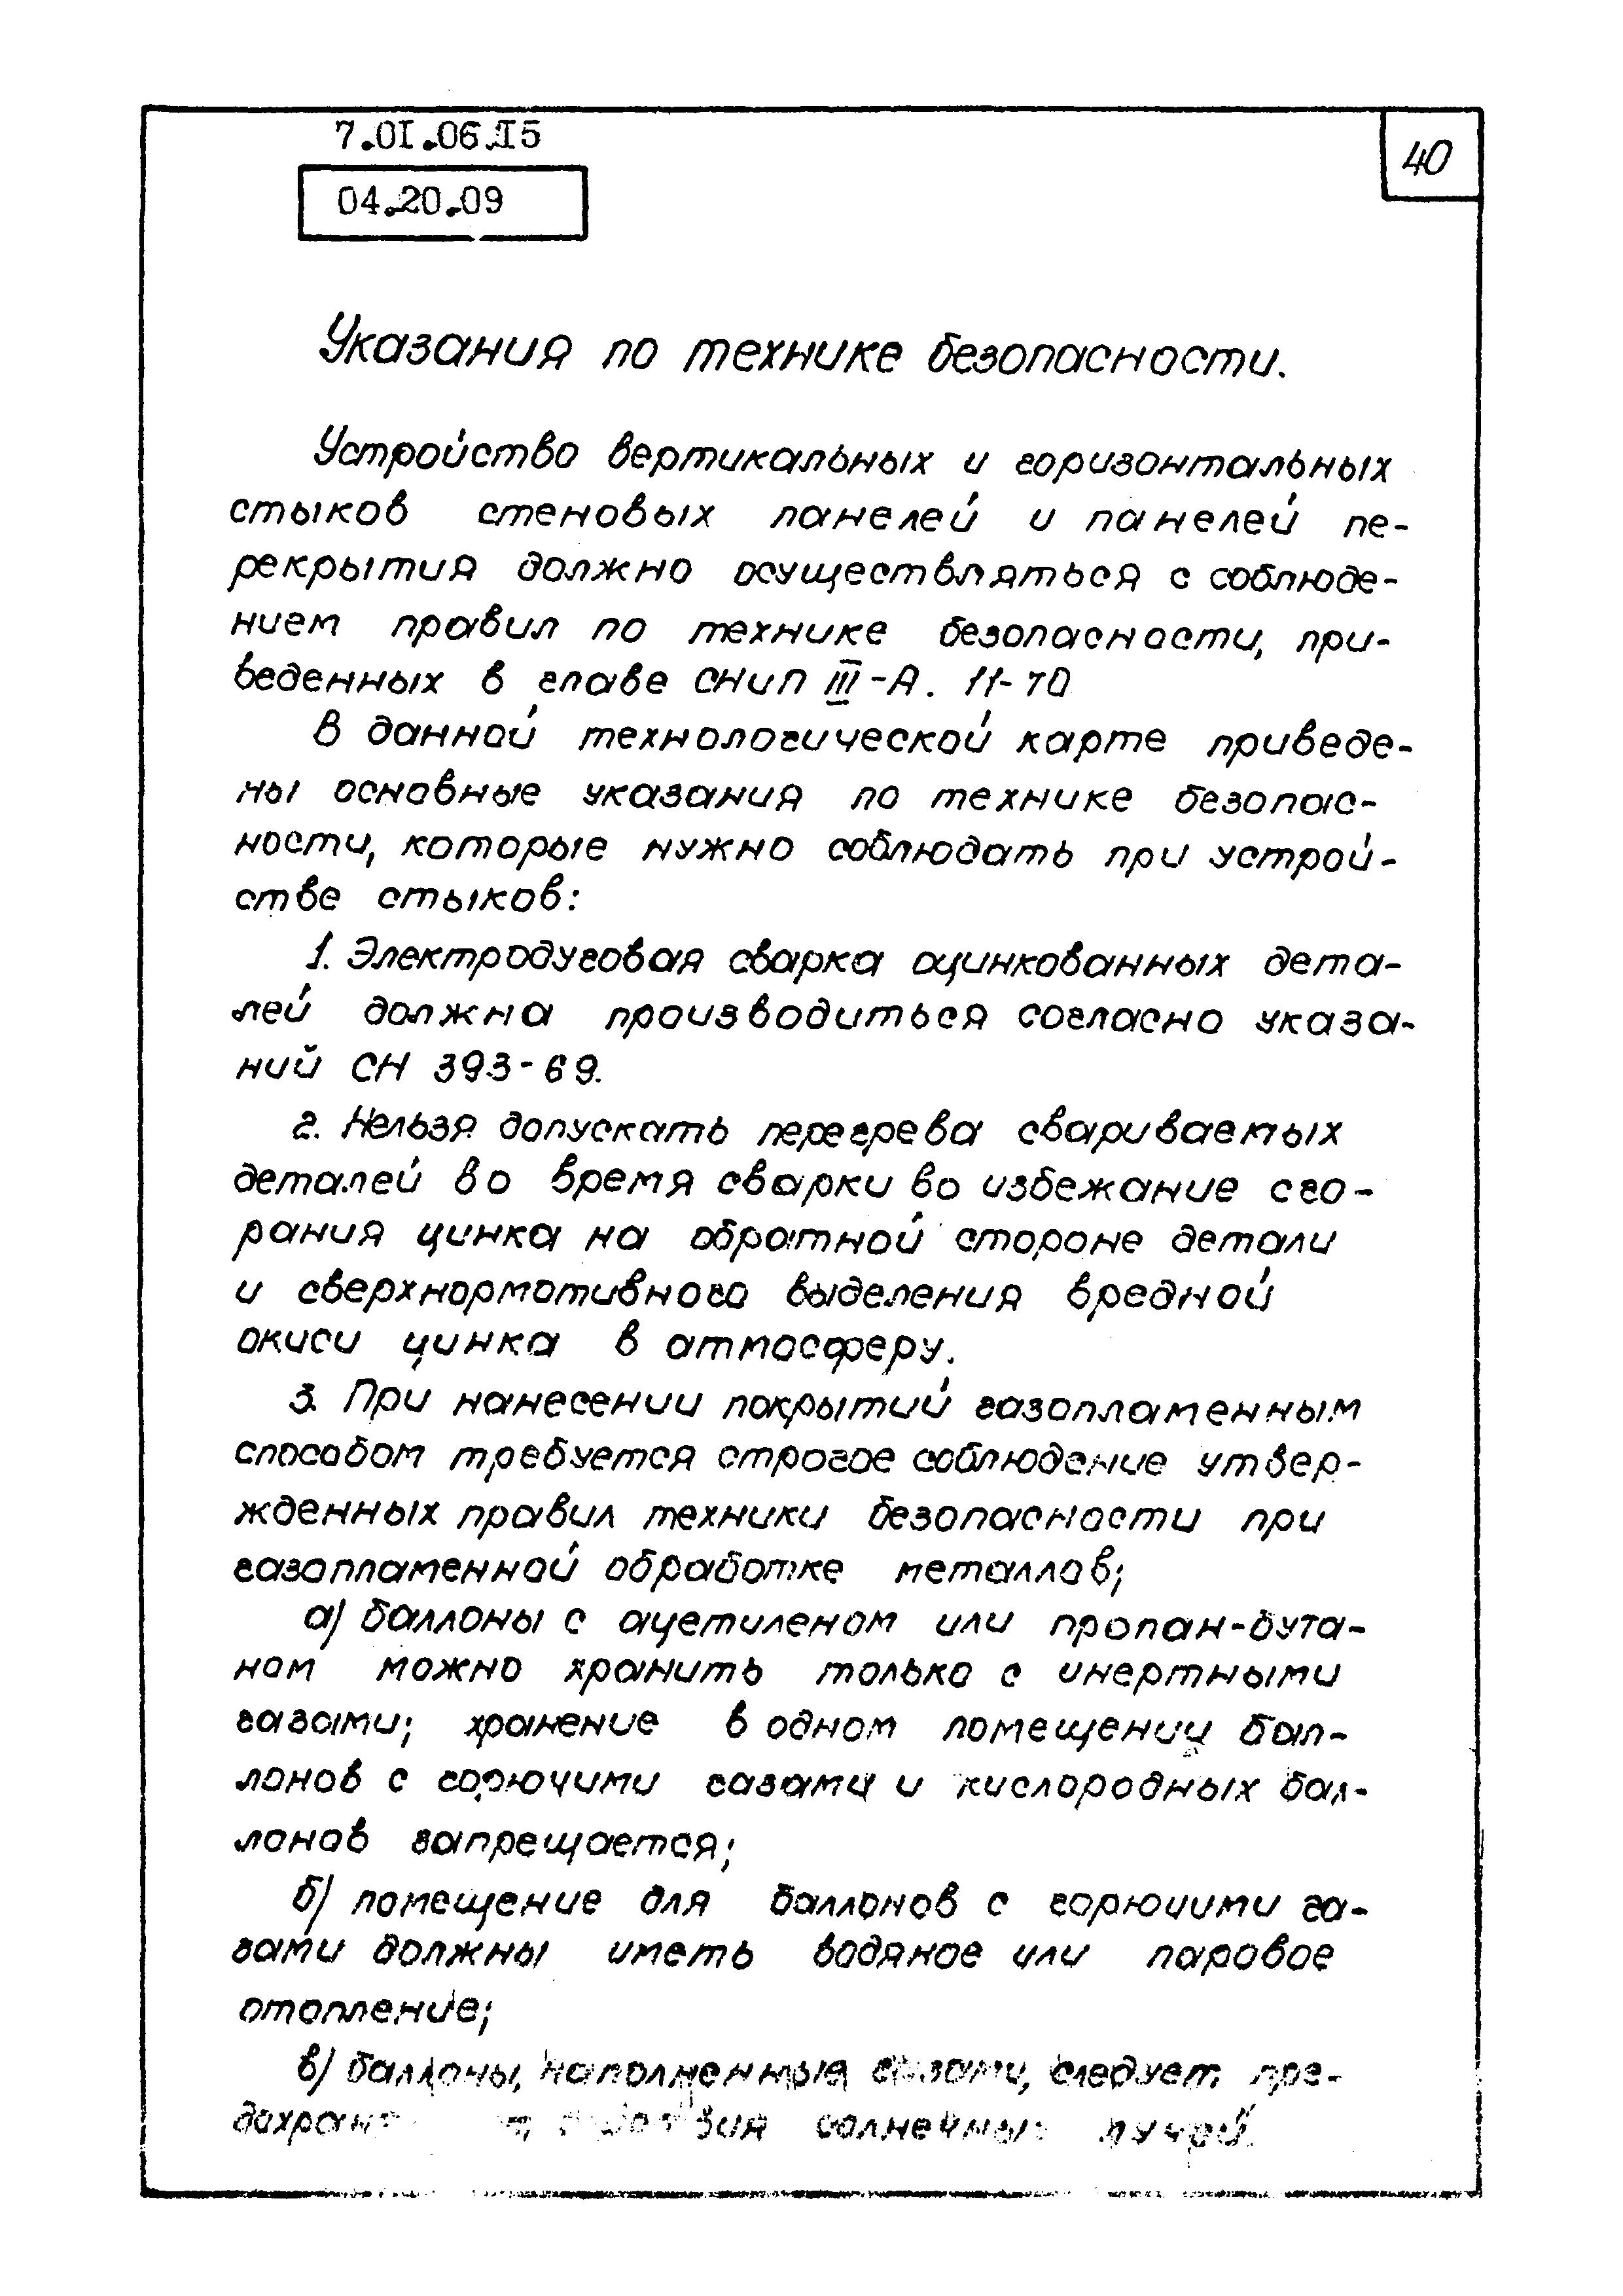 7.01.06.15
40
04.20.09
Указания по технике безопасности.
Устройство вертикальных и горизонтальных
стыков стеновых панелей и панелей пе-
рекрытия должно осуществляться с соблюде-
нием правил по технике безопасности, при-
веденных в главе СНиП III-А. 11-70
В данной технологической карте приведе-
ны основные указания по технике безопас-
ности, которые нужно соблюдать при устрой-
стве стыков:
1. Электродуговая сварка оцинкованных дета-
лей должна производиться согласно указа-
ний СН 393-69.
2. Нельзя допускать перегрева свариваемых
деталей во время сварки во избежание сго-
рания цинка на обратной стороне детали
и сверхнормативного выделения вредной
окиси цинка в атмосферу.
3. При нанесении покрытий газопламенным
способом требуется строгое соблюдение утвер-
жденных правил техники безопасности при
газопламенной обработке металлов;
а) баллоны с ацетиленом или пропан-бута-
ном можно хранить только с инертными
газами; хранение в одном помещении бал-
лонов с горючими газами и кислородных бал-
лонов запрещается;
б) помещение для баллонов с горючими га-
зами должны иметь водяное или паровое
отопление;
в) баллоны, наполненные газами, следует пре-
солнечных лучей.